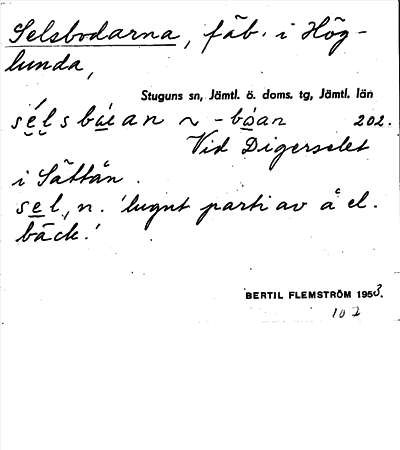 Selsbodarna, fäb. i Hög-
lunda,
Stuguns sn, Jämtl. ö. doms. tg, Jämtl. län
202.
Vid Digerselet
i Sättån.
sel, n. 'lugnt parti av å el.
bäck.'
BERTIL FLEMSTRÖM 1953.
102